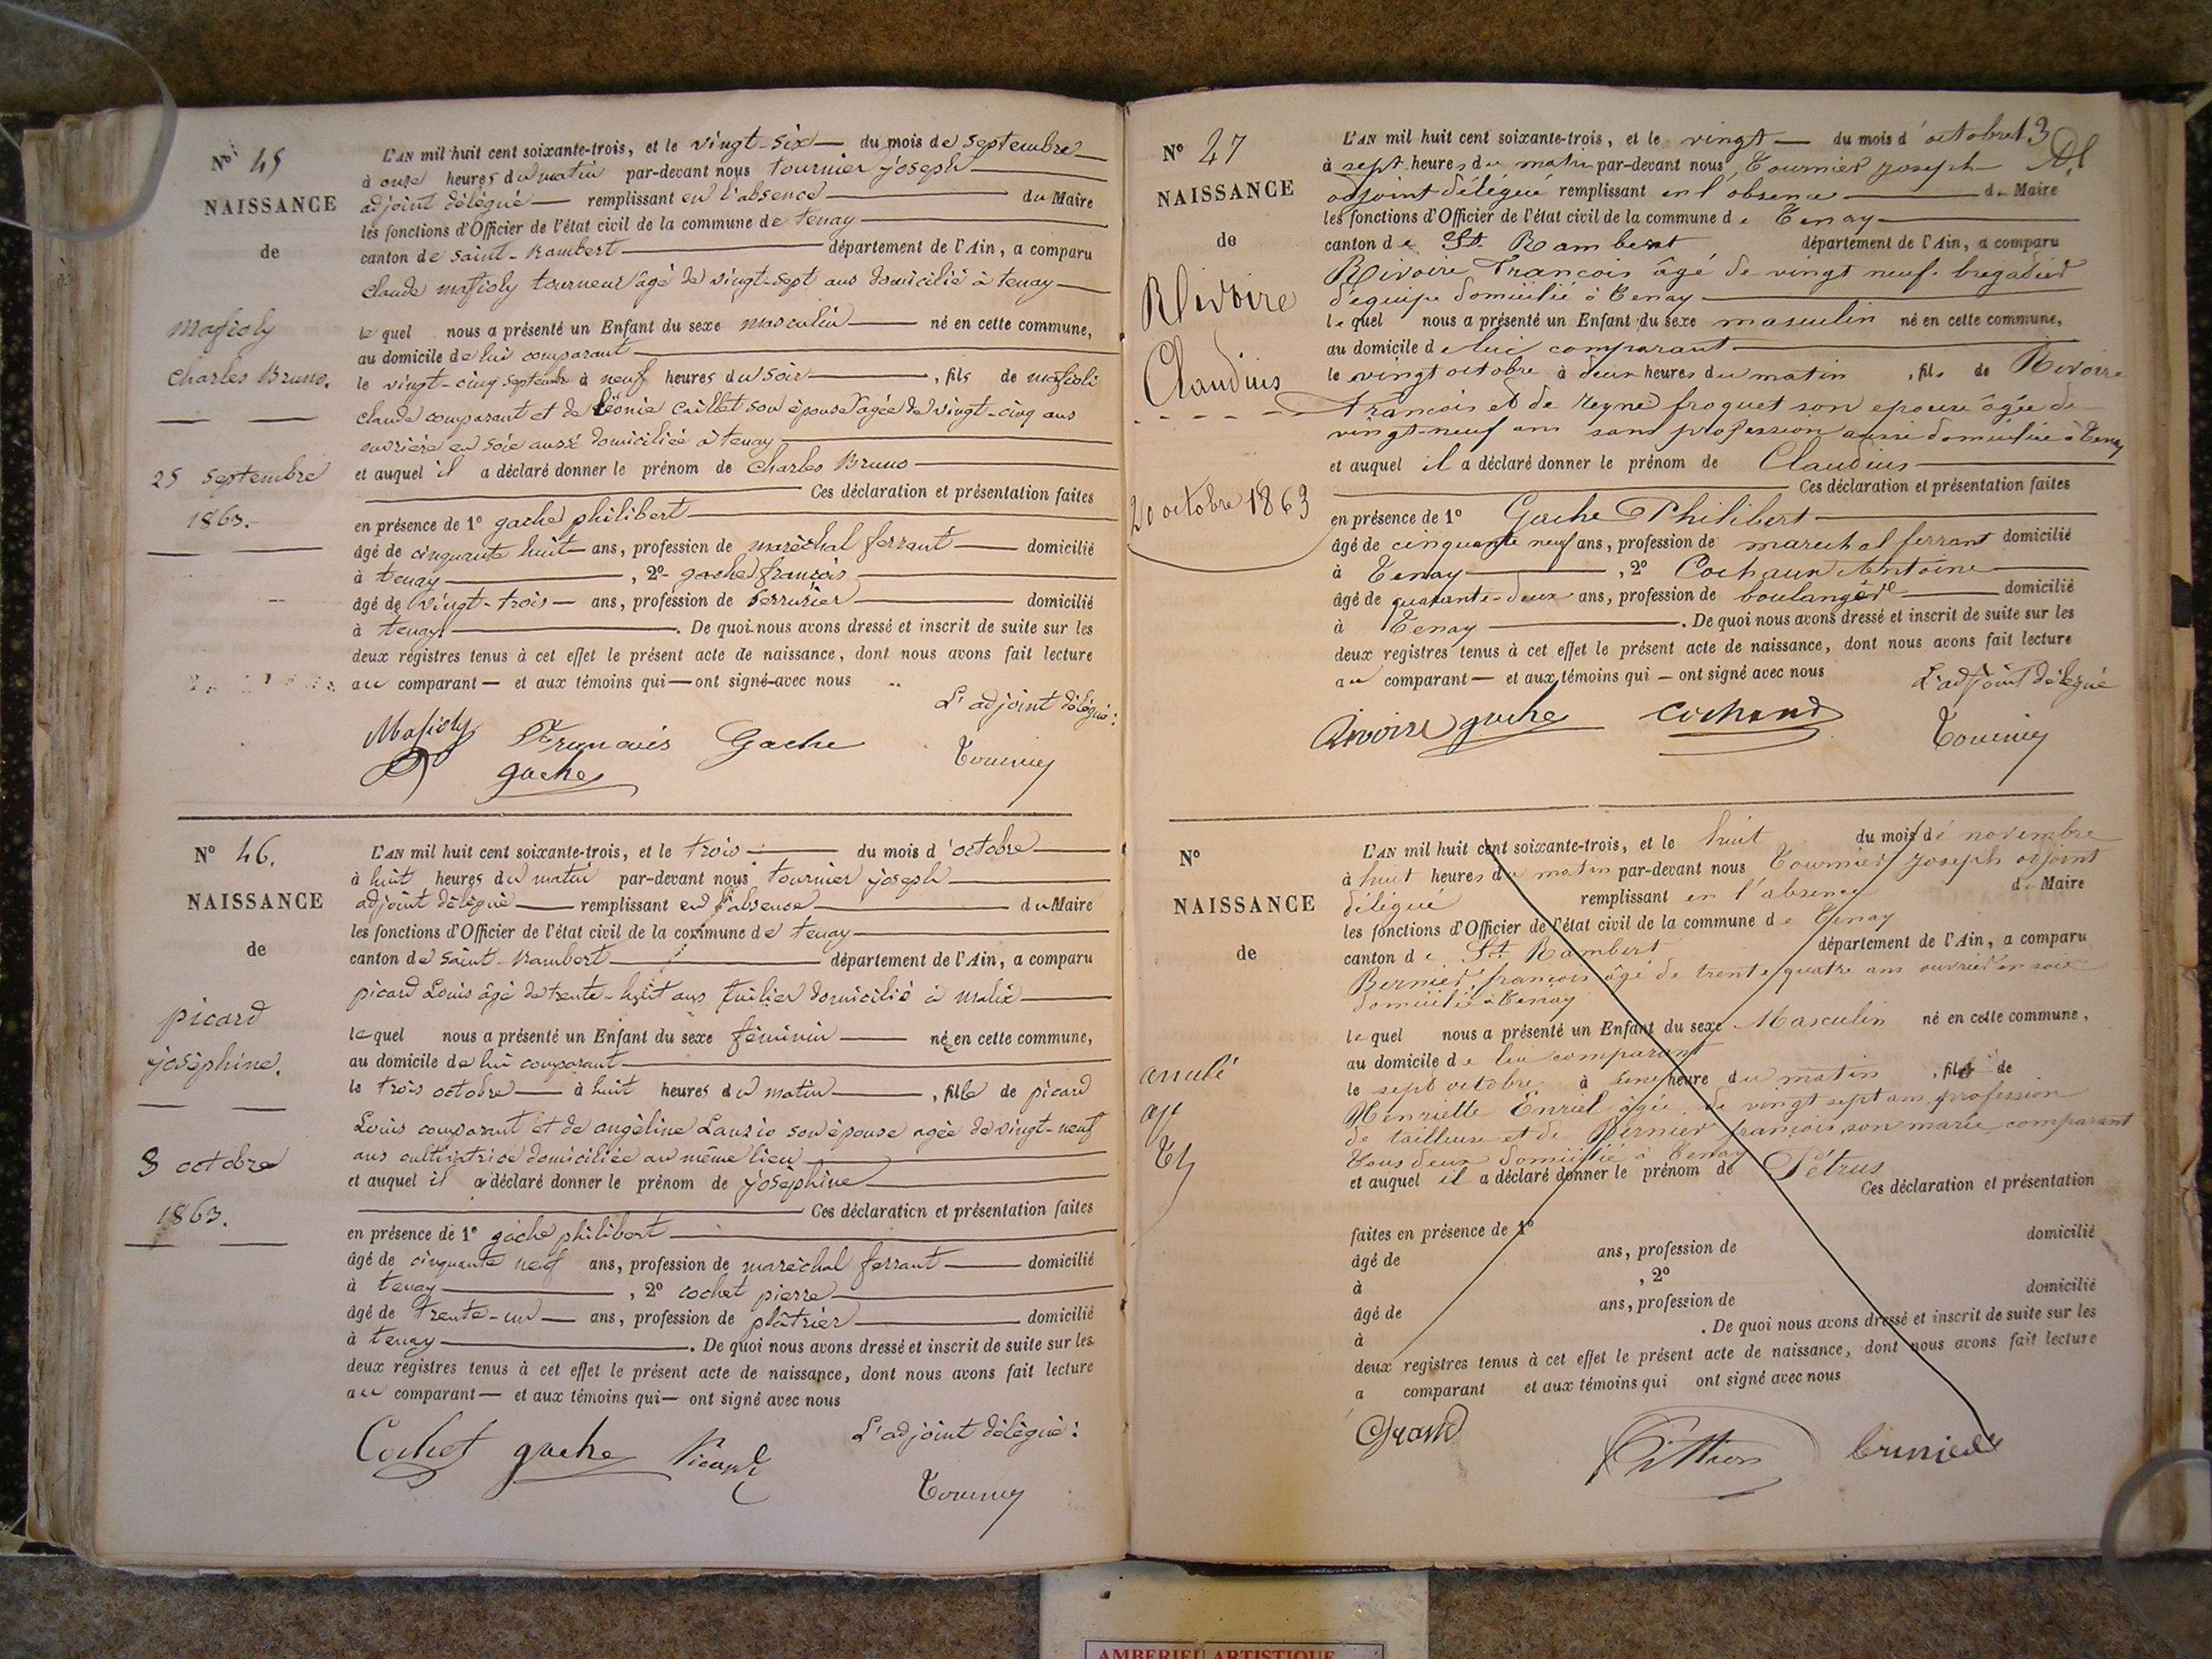 N° 45
NAISSANCE
de
Masioly
Charles Bruno.
25 Septembre
1863.
L'AN mil huit cent soixante-trois, et le vingt-six du mois de septembre
à onze heures du matin par-devant nous tournier joseph
adjoint délégué remplissant en l'absence du Maire
les fonctions d'Officier de l'état civil de la commune de tenay
canton de saint-Rambert département de l'Ain, a comparu
claude masioly tourneur âgé de vingt-sept ans domicilié à tenay
lequel nous a présenté un Enfant du sexe masculin né en cette commune,
au domicile de lui comparant
le vingt-cinq septembre à neuf heures du soir, fils de masioli
claude comparant et de Léonie Caillet son épouse agée de vingt-cinq ans
ouvrière en soie aussi domiciliée à tenay
et auquel il a déclaré donner le prénom de Charles Bruno
Ces déclaration et présentation faites
en présence de 1° gache philibert
âgé de cinquante huit ans, profession de maréchal ferrant domicilié
à tenay, 2° gache françois
âgé de vingt-trois ans, profession de serrurier domicilié
à tenay. De quoi nous avons dressé et inscrit de suite sur les
deux registres tenus à cet effet le présent acte de naissance, dont nous avons fait lecture
au comparant et aux témoins qui ont signé avec nous
L'adjoint délégué:
Masioly Francois Gache
gache
N° 46.
NAISSANCE
de
picard
joséphine.
3 octobre
1863.
L'AN mil huit cent soixante-trois, et le trois du mois d'octobre
à huit heures du matin par-devant nous tournier joseph
adjoint délégué remplissant en l'absence du Maire
les fonctions d'Officier de l'état civil de la commune de tenay
canton de saint-Rambert département de l'Ain, a comparu
picard Louis âgé de trente-huit ans tuilier domicilié à malix
lequel nous a présenté un Enfant du sexe féminin né en cette commune,
au domicile de lui comparant
le trois octobre à huit heures du matin, fille de picard
Louis comparant et de angéline Lanzio son épouse agée de vingt-neuf
ans cultivatrice domiciliée au même lieu
et auquel il a déclaré donner le prénom de joséphine
Ces déclaration et présentation faites
en présence de 1° gache philibert
âgé de cinquante neuf ans, profession de maréchal ferrant domicilié
à tenay, 2° cochet pierre
âgé de trente-un ans, profession de plâtrier domicilié
à tenay. De quoi nous avons dressé et inscrit de suite sur les
deux registres tenus à cet effet le présent acte de naissance, dont nous avons fait lecture
au comparant et aux témoins qui ont signé avec nous
L'adjoint délégué:
Cochet gache Picard
13
N° 27
NAISSANCE
de
Rivoire
Claudius
20 octobre 1863
L'AN mil huit cent soixante-trois, et le vingt du mois d'octobre
à sept heures du matin par-devant nous Tournier joseph
adjoint délégué remplissant en l'absence du Maire
les fonctions d'Officier de l'état civil de la commune de Tenay
canton de St Rambert département de l'Ain, a comparu
Rivoire Francois âgé de vingt neuf brigadier
d'équipe domicilié à Tenay
lequel nous a présenté un Enfant du sexe masculin né en cette commune,
au domicile de lui comparant
le vingt octobre à deux heures du matin, fils de Rivoire
Francois et de Reyne froquet son epouse âgée de
vingt-neuf ans sans profession aussi domiciliée à Tenay
et auquel il a déclaré donner le prénom de Claudius
Ces déclaration et présentation faites
en présence de 1° Gache Philibert
âgé de cinquante neuf ans, profession de marechal ferrant domicilié
à Tenay, 2° Cochaux Antoine
âgé de quarante-deux ans, profession de boulanger domicilié
à Tenay. De quoi nous avons dressé et inscrit de suite sur les
deux registres tenus à cet effet le présent acte de naissance, dont nous avons fait lecture
au comparant et aux témoins qui ont signé avec nous
L'adjoint délégué
Rivoire gache cochand
N°
NAISSANCE
de
annulé
L'AN mil huit cent soixante-trois, et le huit du mois de novembre
à huit heures du matin par-devant nous Tournier joseph adjoint
délégué remplissant en l'absence du Maire
les fonctions d'Officier de l'état civil de la commune de Tenay
canton de St Rambert département de l'Ain, a comparu
Bernier françois âgé de trente quatre ans ouvrier en soie
domicilié à Tenay
lequel nous a présenté un Enfant du sexe Masculin né en cette commune,
au domicile de lui comparant
le sept octobre à une heure du matin, fils de
Henriette Enriel âgée de vingt sept ans profession
de tailleuse et de Bernier françois son marie comparant
tous deux domicilié à Tenay
et auquel il a déclaré donner le prénom de Pétrus
Ces déclaration et présentation
faites en présence de 1°
âgé de ans, profession de domicilié
à , 2°
âgé de ans, profession de domicilié
à . De quoi nous avons dressé et inscrit de suite sur les
deux registres tenus à cet effet le présent acte de naissance, dont nous avons fait lecture
a comparant et aux témoins qui ont signé avec nous
Grand
AMBERIEU ARTISTIQUE